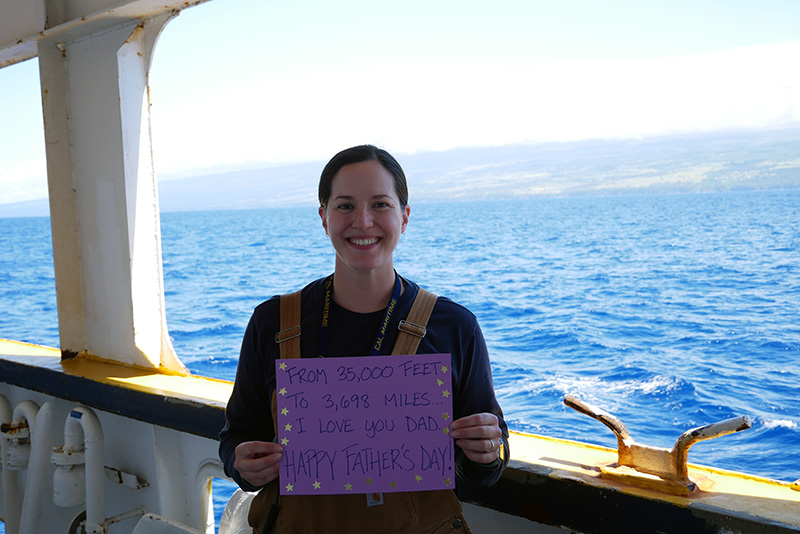 FROM 35,000 FEET
TO 3,698 MILES...
I LOVE YOU DAD.
HAPPY FATHER'S DAY!
CAL MARITIME
MARITIME